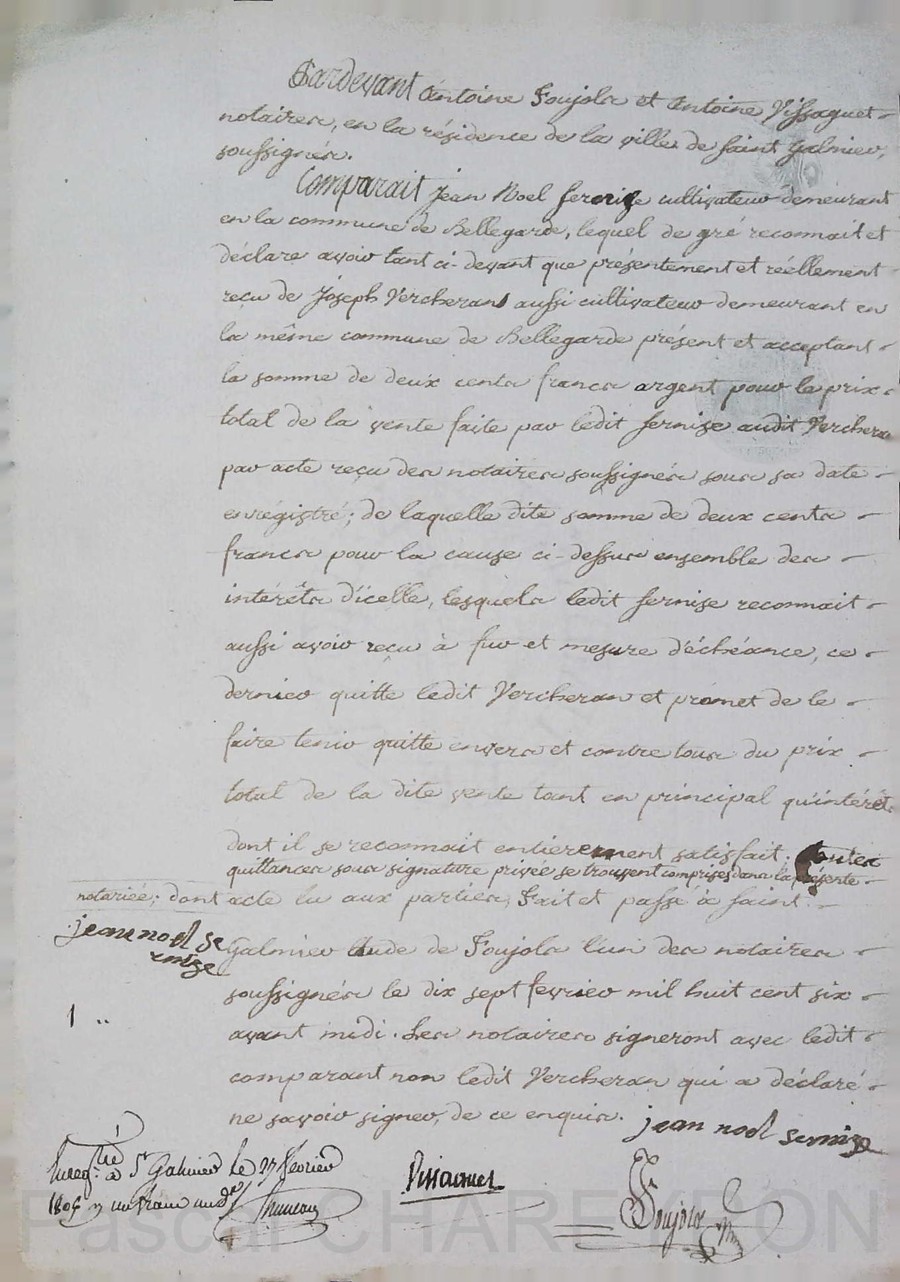 Pardevant Antoine Foujols et Antoine Vissaguet
notaires, en la résidence de la ville de Saint Galmier,
soussignés.
Comparait Jean Noel Sernize cultivateur demeurant
en la commune de Bellegarde, lequel de gré reconnait et
déclare avoir tant ci-devant que présentement et réellement
reçu de Joseph Vercheran aussi cultivateur demeurant en
la même commune de Bellegarde présent et acceptant
la somme de deux cents francs argent pour le prix
total de la vente faite par ledit Sernize audit Vercheran
par acte reçu des notaires soussignés sous sa date
enrégistré; de laquelle dite somme de deux cents
francs pour la cause ci-dessus ensemble des
intérêts d'icelle, lesquels ledit Sernize reconnait
aussi avoir reçu à fur et mesure d'échéance, ce
dernier quitte ledit Vercheran et promet de le
faire tenir quitte envers et contre tous du prix
total de la dite vente tant en principal qu'intérêts
dont il se reconnait entièrement satisfait. toutes
quittances sous signature privée se trouvent comprises dans la présente
notariée; dont acte lu aux parties, Fait et passé à Saint
jean noel se
rnize
Galmier étude de Foujols l'un des notaires
soussignés le dix sept fevrier mil huit cent six
avant midi. Les notaires signeront avec ledit
comparant non ledit Vercheran qui a déclaré
ne savoir signer, de ce enquis.
jean noel sernize
Enregtré à St Galmier le 27 fevrier
1806 un franc
Vissaguet
Foujols
Pascal CHAREYRON